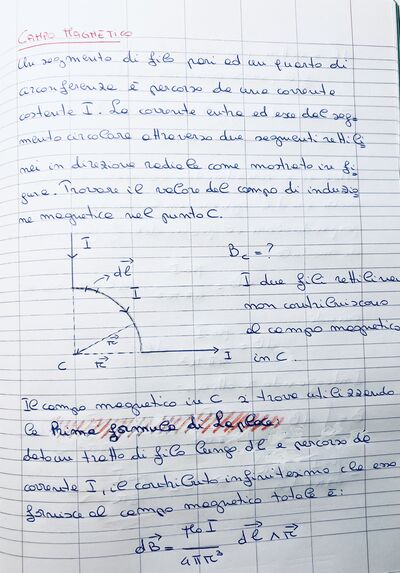 CAMPO MAGNETICO
Un segmento di filo pari ad un quarto di
circonferenza è percorso da una corrente
costante I. La corrente entra ed esce dal seg-
mento circolare attraverso due segmenti rettili
nei in direzione radiale come mostrato in fi-
gura. Trovare il valore del campo di induzio
ne magnetica nel punto C.
I
dl
I
r
C
r
I
B_C = ?
I due fili rettilinei
non contribuiscono
al campo magnetico
in C.
Il campo magnetico in C si trova utilizzando
la Prima formula di Laplace:
dato un tratto di filo lungo dl e percorso da
corrente I, il contributo infinitesimo che esso
fornisce al campo magnetico totale è:
dB = μ₀ I / 4πr³ dl ∧ r